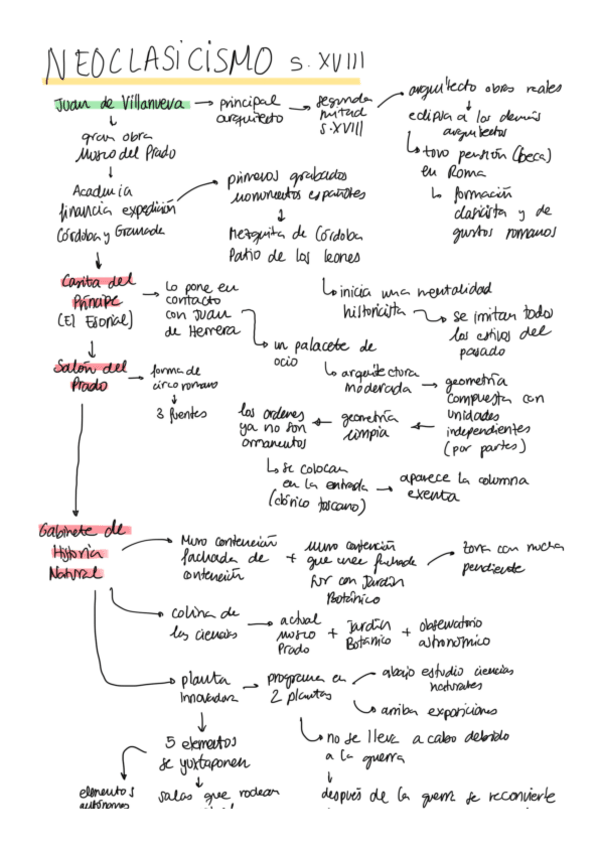 NEOCLASICISMO S. XVIII
Juan de Villanueva → principal arquitecto → segunda mitad S.XVIII → arquitecto obras reales
eclipsa a los demás arquitectos
tuvo pensión (beca) en Roma
formación clasicista y de gustos romanos
gran obra
Museo del Prado
Academia
financia expedición
Córdoba y Granada
primeros grabados
monumentos españoles
Mezquita de Córdoba
Patio de los leones
inicia una mentalidad
historicista → se imitan todos
los estilos del
pasado
Casita del
Príncipe
(El Escorial)
Lo pone en
contacto
con Juan
de Herrera
un palacete de
ocio
arquitectura
moderada → geometría
compuesta con
unidades
independientes
(por partes)
geometría
limpia
los ordenes
ya no son
ornamentos
se colocan
en la entrada
(dórico toscano)
aparece la columna
exenta
Salón del
Prado
forma de
circo romano
3 fuentes
Gabinete de
Historia
Natural
Muro contención
fachada de
contención
+
muro contención
que une fachada
sur con Jardín
Botánico
zona con mucha
pendiente
colina de
las ciencias
→ actual
museo
Prado
+ Jardín
Botánico
+ observatorio
astronómico
planta
innovadora
→ programa en
2 plantas
abajo estudio ciencias
naturales
arriba exposiciones
no se lleva a cabo debido
a la guerra
después de la guerra se reconvierte
5 elementos
se yuxtaponen
elementos
autónomos
salas que rodean